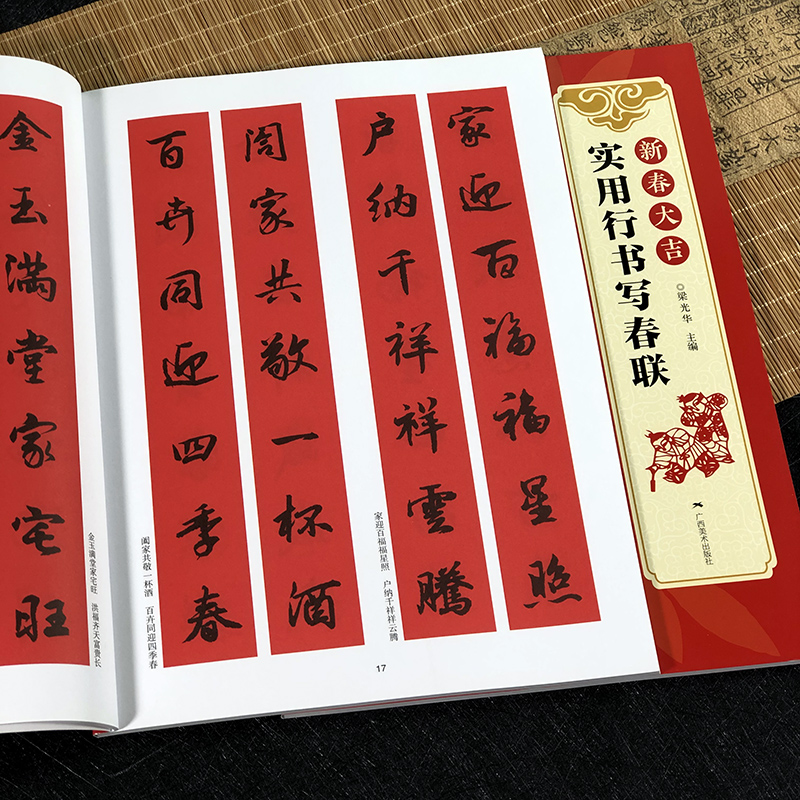 新春大吉
实用行书写春联
◎梁光华 主编
广西美术出版社
家迎百福福星照
户纳千祥祥雲騰
家迎百福福星照 户纳千祥祥云腾
閤家共敬一杯酒
百卉同迎四季春
阖家共敬一杯酒 百卉同迎四季春
17
金玉满堂家宅旺
金玉满堂家宅旺 洪福齐天富贵长